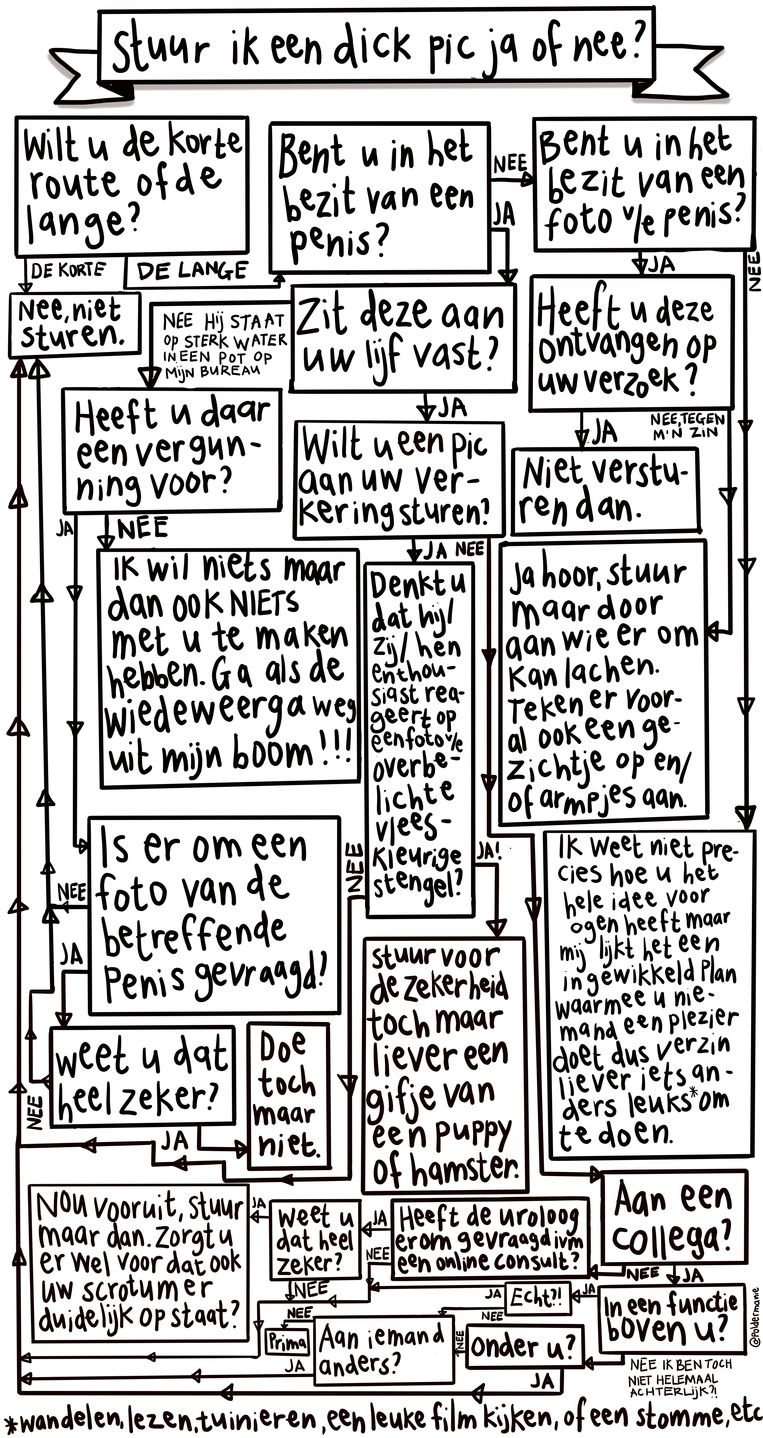 Stuur ik een dick pic ja of nee?
Wilt u de korte
route of de
lange?
DE KORTE
DE LANGE
Nee, niet
sturen.
Bent u in het
bezit van een
penis?
NEE
JA
Bent u in het
bezit van een
foto v/e penis?
JA
NEE
Zit deze aan
uw lijf vast?
NEE HIJ STAAT
OP STERK WATER
IN EEN POT OP
MIJN BUREAU
JA
Heeft u deze
ontvangen op
uw verzoek?
JA
NEE, TEGEN
M'N ZIN
Niet verstu-
ren dan.
Heeft u daar
een vergun-
ning voor?
JA
NEE
Wilt u een pic
aan uw ver-
kering sturen?
JA
NEE
Ik wil niets maar
dan ook NIETS
met u te maken
hebben. Ga als de
wiedeweerga weg
uit mijn boom!!!
Denkt u
dat hij/
zij/hen
enthou-
siast rea-
geert op
een foto v/e
overbe-
lichte
vlees-
kleurige
stengel?
NEE
JA!
Ja hoor, stuur
maar door
aan wie er om
kan lachen.
Teken er voor-
al ook een ge-
zichtje op en/
of armpjes aan.
Is er om een
foto van de
betreffende
penis gevraagd?
NEE
JA
Ik weet niet pre-
cies hoe u het
hele idee voor
ogen heeft maar
mij lijkt het een
ingewikkeld plan
waarmee u nie-
mand een plezier
doet dus verzin
liever iets an-
ders leuks* om
te doen.
Stuur voor
de zekerheid
toch maar
liever een
gifje van
een puppy
of hamster.
Weet u dat
heel zeker?
NEE
JA
Doe
toch
maar
niet.
Aan een
collega?
NEE
JA
Heeft de uroloog
erom gevraagd ivm
een online consult?
JA
NEE
Weet u
dat heel
zeker?
JA
NEE
Nou vooruit, stuur
maar dan. Zorgt u
er wel voor dat ook
uw scrotum er
duidelijk op staat?
In een functie
boven u?
JA
NEE IK BEN TOCH
NIET HELEMAAL
ACHTERLIJK?!
Echt?!
JA
NEE
Onder u?
NEE
JA
Aan iemand
anders?
NEE
JA
Prima
@Poldermanie
*wandelen, lezen, tuinieren, een leuke film kijken, of een stomme, etc